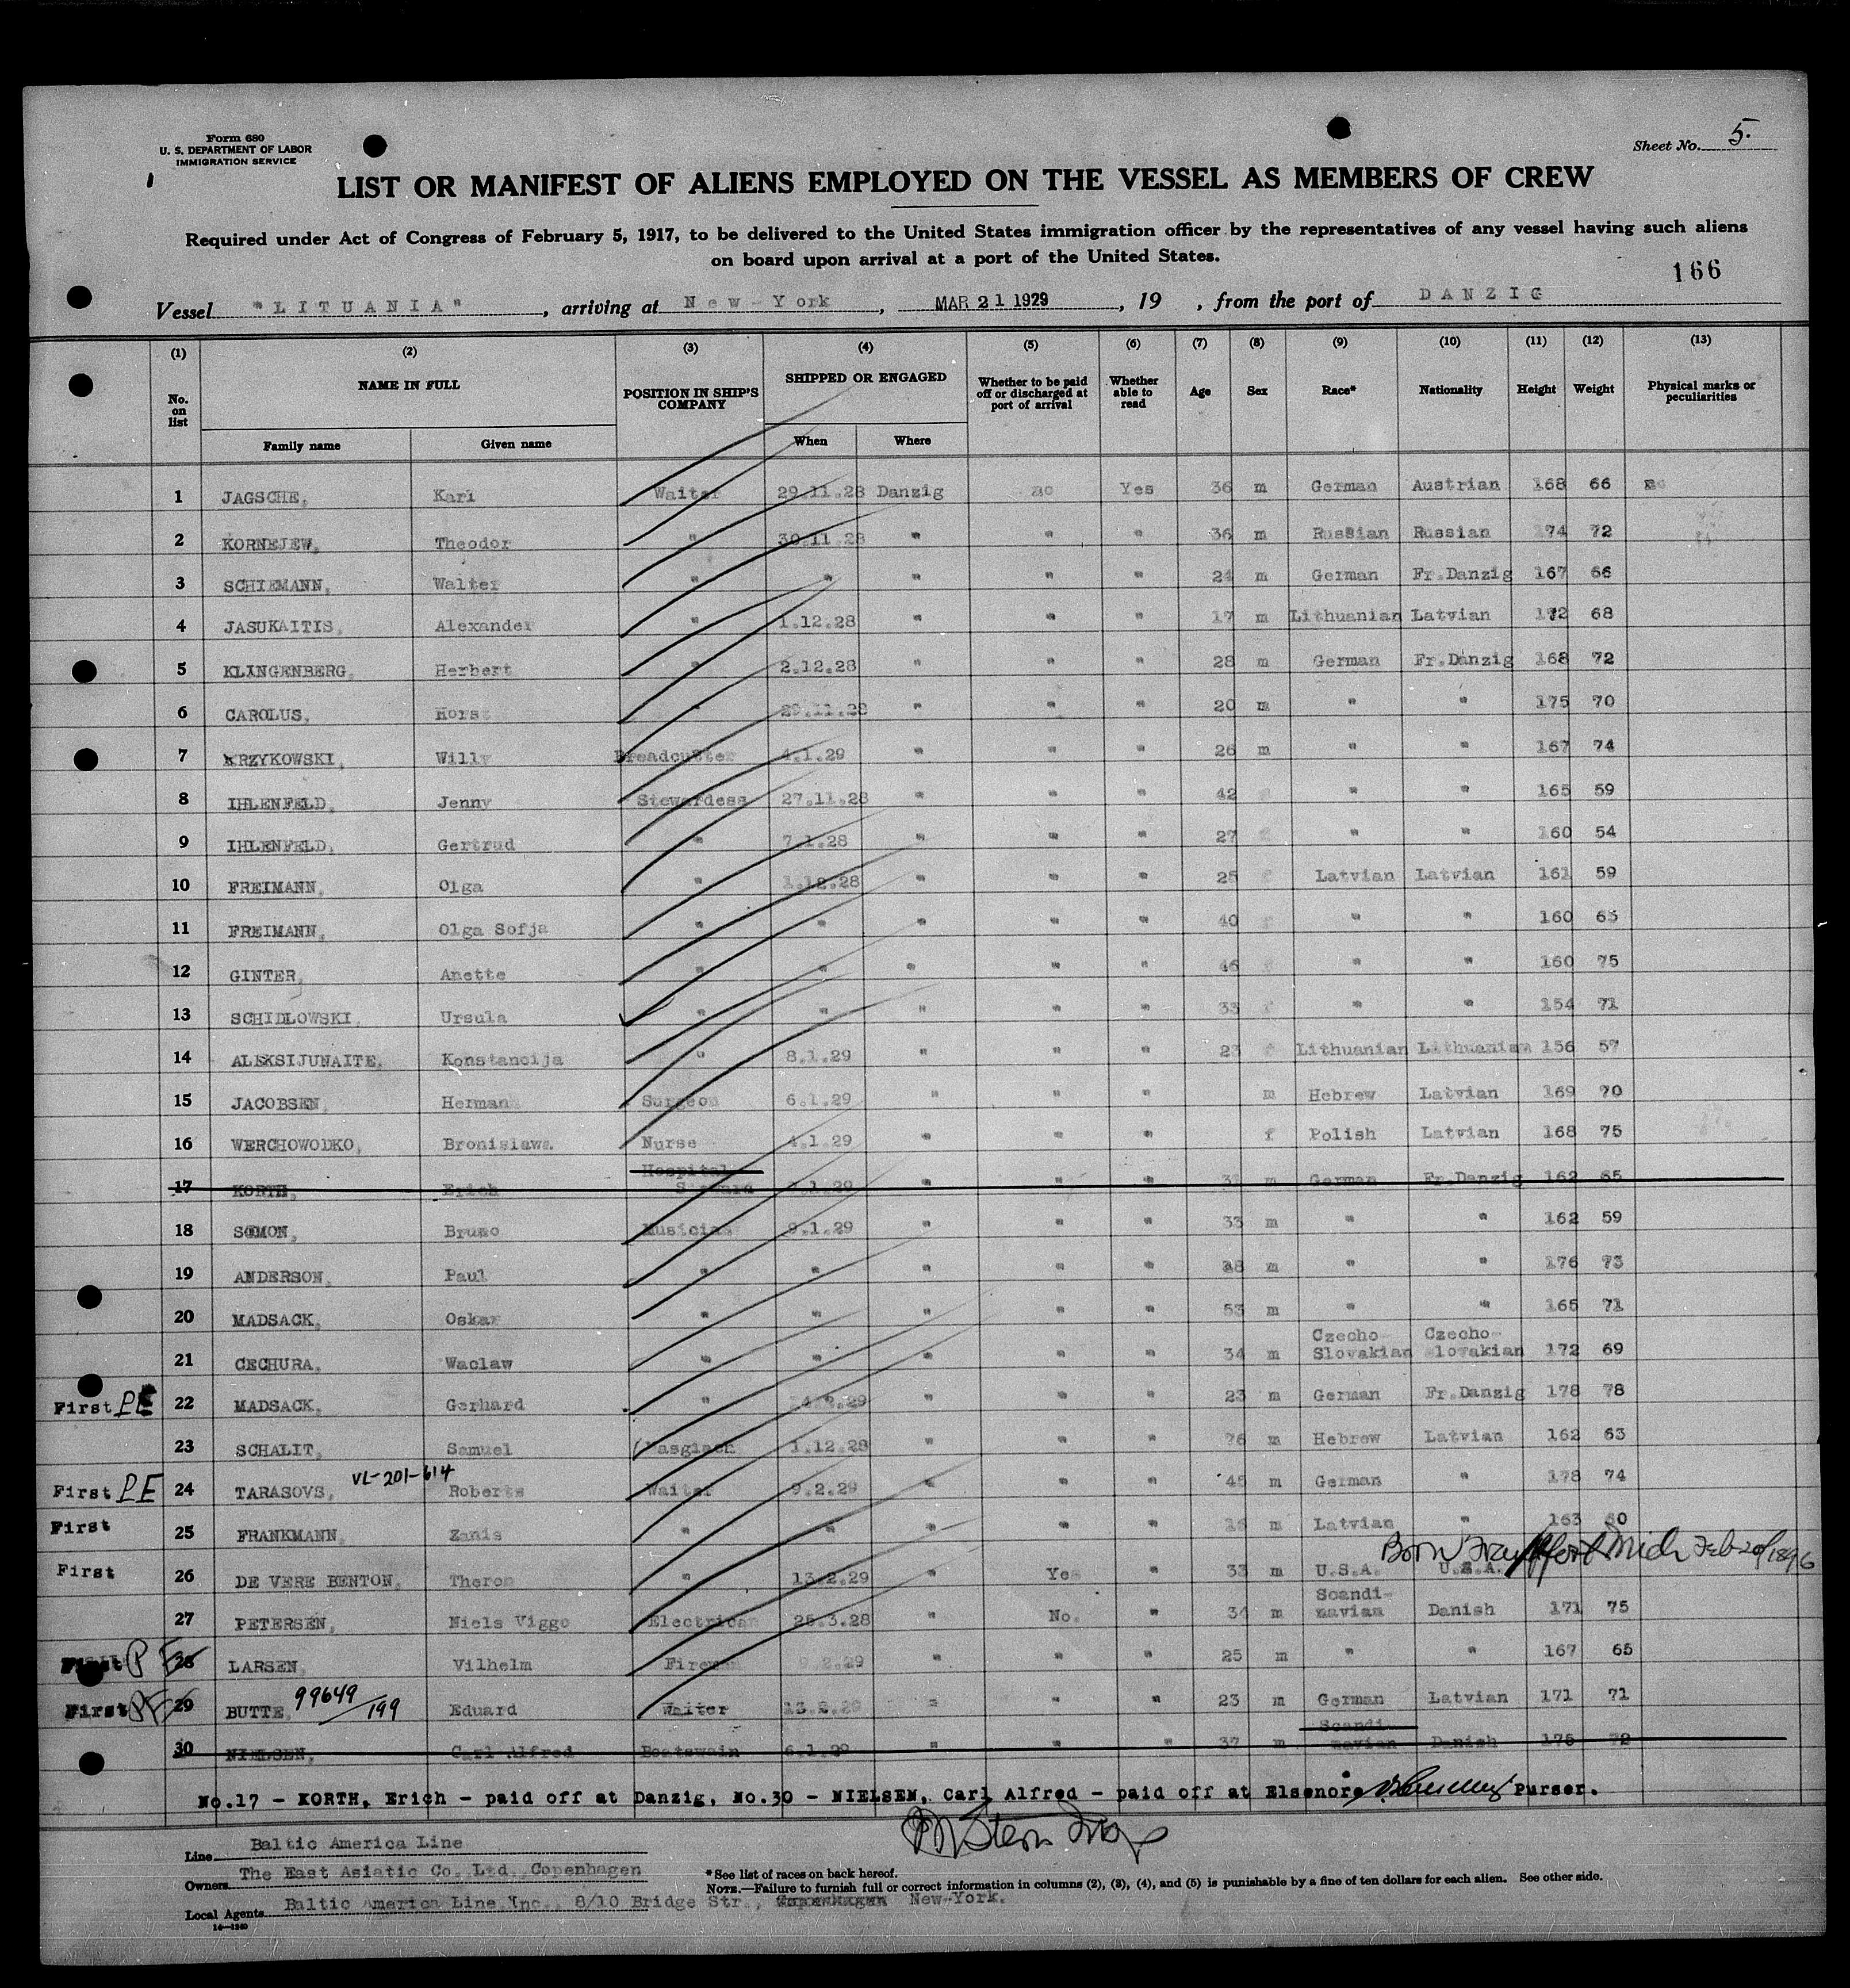 Form 680
U. S. DEPARTMENT OF LABOR
IMMIGRATION SERVICE
Sheet No. 5.
LIST OR MANIFEST OF ALIENS EMPLOYED ON THE VESSEL AS MEMBERS OF CREW
Required under Act of Congress of February 5, 1917, to be delivered to the United States immigration officer by the representatives of any vessel having such aliens
on board upon arrival at a port of the United States.
166
Vessel "LITUANIA", arriving at New-York, MAR 21 1929, 19 , from the port of DANZIG
(1) (2) (3) (4) (5) (6) (7) (8) (9) (10) (11) (12) (13)
No. on list NAME IN FULL POSITION IN SHIP'S COMPANY SHIPPED OR ENGAGED Whether to be paid off or discharged at port of arrival Whether able to read Age Sex Race* Nationality Height Weight Physical marks or peculiarities
Family name Given name When Where
1 JAGSCHE, Karl Waiter 29.11.28 Danzig no Yes 36 m German Austrian 168 66 no
2 KORNEJEW, Theodor " 30.11.28 " " " 36 m Russian Russian 174 72
3 SCHIEMANN, Walter " " " " " 24 m German Fr.Danzig 167 66
4 JASUKAITIS, Alexander " 1.12.28 " " " 17 m Lithuanian Latvian 172 68
5 KLINGENBERG, Herbert " 2.12.28 " " " 28 m German Fr.Danzig 168 72
6 CAROLUS, Horst " 29.11.28 " " " 20 m " " 175 70
7 KRZYKOWSKI, Willy Breadcutter 4.1.29 " " " 26 m " " 167 74
8 IHLENFELD, Jenny Stewardess 27.11.28 " " " 42 f " " 165 59
9 IHLENFELD, Gertrud " 7.1.28 " " " 27 f " " 160 54
10 FREIMANN, Olga " 1.12.28 " " " 25 f Latvian Latvian 161 59
11 FREIMANN, Olga Sofja " " " " " 40 f " " 160 65
12 GINTER, Anette " " " " " 46 f " " 160 75
13 SCHIDLOWSKI, Ursula " " " " " 33 f " " 154 71
14 ALEKSIJUNAITE, Konstancija " 8.1.29 " " " 23 f Lithuanian Lithuanian 156 57
15 JACOBSEN, Hermann Surgeon 6.1.29 " " " m Hebrew Latvian 169 70
16 WERCHOWODKO, Bronislawa. Nurse 4.1.29 " " " f Polish Latvian 168 75
Hospital
17 KORTH, Erich Steward 7.1.29 " " " m German Fr.Danzig 162 65
18 SOMON, Bruno Musician 9.1.29 " " " 33 m " " 162 59
19 ANDERSON, Paul " " " " " m " " 176 73
20 MADSACK, Oskar " " " " " 53 m " " 165 71
Czecho- Czecho-
21 CECHURA, Waclaw " " " " " 34 m Slovakian Slovakian 172 69
First PE 22 MADSACK, Gerhard " 14.2.29 " " " 23 m German Fr.Danzig 178 78
23 SCHALIT, Samuel Masgiach 1.12.28 " " " 76 m Hebrew Latvian 162 63
VL-201-614
First PE 24 TARASOVS, Roberts Waiter 9.2.29 " " " 45 m German " 178 74
First 25 FRANKMANN, Zanis " " " " " m Latvian " 163 60
Born Frankfort Mich Feb 20/1896
First 26 DE VERE BENTON, Theron " 13.2.29 " Yes " 33 m U.S.A. U.S.A.
Scandi-
27 PETERSEN, Niels Viggo Electrican 25.3.28 " No. " 34 m navian Danish 171 75
First PE 28 LARSEN, Vilhelm Fireman 9.2.29 " " " 25 m " " 167 65
First PE 29 BUTTE, 99649/199 Eduard Waiter 13.2.29 " " " 23 m German Latvian 171 71
Scandi-
30 NIELSEN, Carl Alfred Boatswain 6.1.29 " " " 37 m navian Danish 175 72
No.17 - KORTH, Erich - paid off at Danzig, No.30 - NIELSEN, Carl Alfred - paid off at Elsenore Purser.
Line Baltic America Line
Owners The East Asiatic Co. Ltd., Copenhagen
Local Agents Baltic America Line Inc., 8/10 Bridge Str., Copenhagen New-York.
*See list of races on back hereof.
NOTE.—Failure to furnish full or correct information in columns (2), (3), (4), and (5) is punishable by a fine of ten dollars for each alien. See other side.